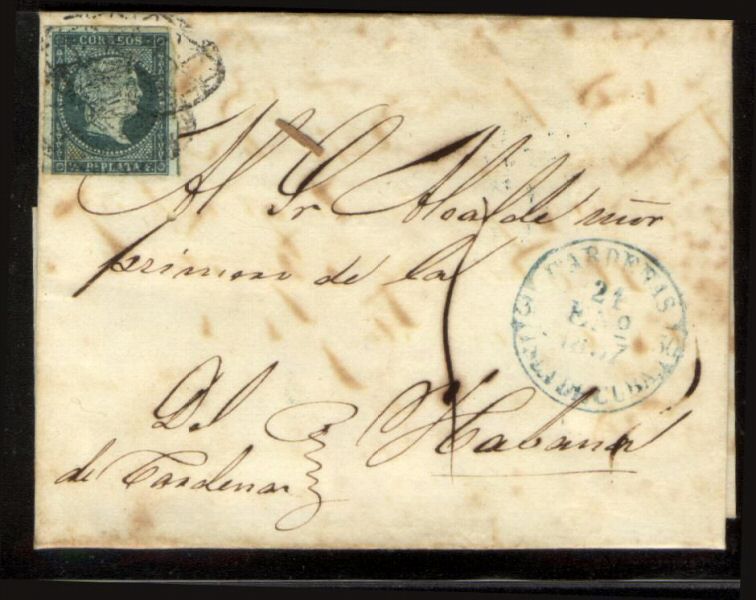 CORREOS
½ Rl PLATA F
Al Sr Alcalde mor
primero de la
Habana
Del
de Cardenas
CARDENAS
21
ENO
1857
ISLA DE CUBA